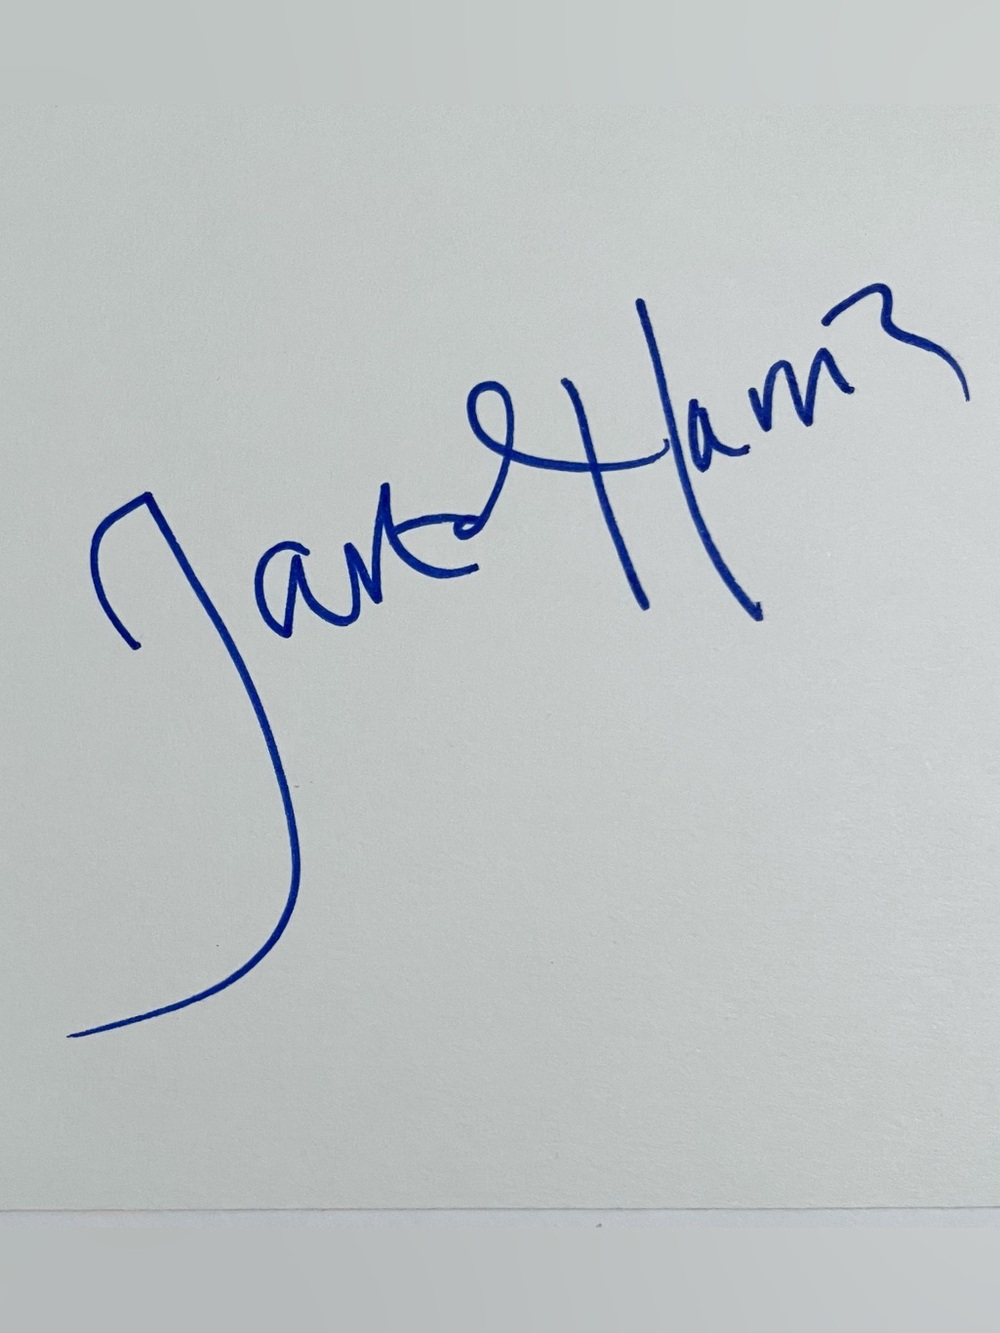 Jared Harris